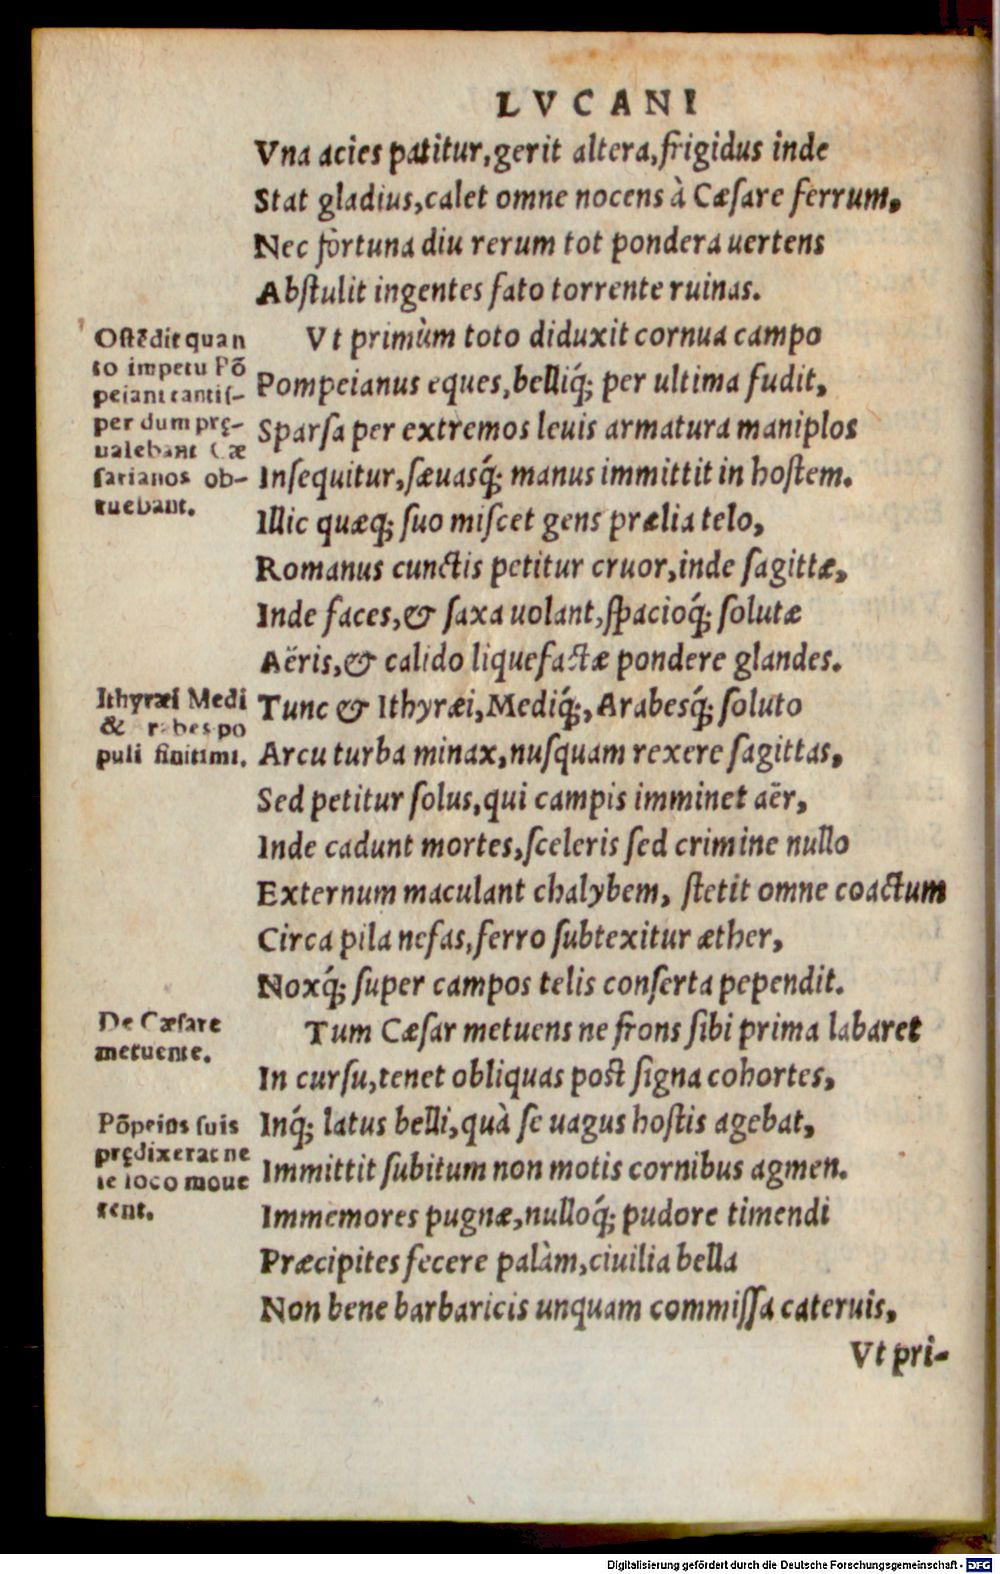 LVCANI
Vna acies patitur,gerit altera,frigidus inde
Stat gladius,calet omne nocens à Cæſare ferrum,
Nec fortuna diu rerum tot pondera uertens
Abſtulit ingentes fato torrente ruinas.
Oſtēdit quan
to impetu Pō
peiani tantiſ-
per dum prę-
ualebant Cæ
ſarianos ob-
ruebant.
Vt primùm toto diduxit cornua campo
Pompeianus eques,belliq́; per ultima fudit,
Sparſa per extremos leuis armatura maniplos
Inſequitur,ſæuasq́; manus immittit in hoſtem.
Illic quæq; ſuo miſcet gens prælia telo,
Romanus cunctis petitur cruor,inde ſagittæ,
Inde faces,& ſaxa uolant,ſpacioq́; ſolutæ
Aëris,& calido liquefactæ pondere glandes.
Ithyræi Medi
& rabes po
puli finitimi.
Tunc & Ithyræi,Mediq́;,Arabesq́; ſoluto
Arcu turba minax,nuſquam rexere ſagittas,
Sed petitur ſolus,qui campis imminet aër,
Inde cadunt mortes,ſceleris ſed crimine nullo
Externum maculant chalybem, ſtetit omne coactum
Circa pila nefas,ferro ſubtexitur æther,
Noxq́; ſuper campos telis conſerta pependit.
De Cæſare
metuente.
Tum Cæſar metuens ne frons ſibi prima labaret
In curſu,tenet obliquas poſt ſigna cohortes,
Pōpeiꝰ ſuis
prędixerat ne
ſe loco moue
rent.
Inq́; latus belli,quà ſe uagus hoſtis agebat,
Immittit ſubitum non motis cornibus agmen.
Immemores pugnæ,nulloq́; pudore timendi
Præcipites fecere palàm,ciuilia bella
Non bene barbaricis unquam commiſſa cateruis,
Vt pri-
Digitalisierung gefördert durch die Deutsche Forschungsgemeinschaft - DFG